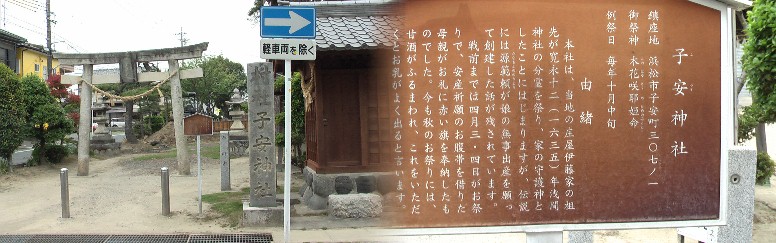 軽車両を除く
村社子安神社
子安神社
鎮座地 浜松市子安町三〇七ノ一
御祭神 木花咲耶姫命
例祭日 毎年十月中旬
由緒
本社は、当地の庄屋伊藤家の祖
先が寛永十二(一六三五)年浅間
神社の分霊を祭り、家の守護神と
したことにはじまりますが、伝説
には源範頼が娘の無事出産を願っ
て創建した話が残されています。
戦前までは四月三・四日がお祭
りで、安産祈願のお腹帯を借りた
母親がお礼に赤い旗を奉納したも
のでした。今も秋のお祭りには、
甘酒がふるまわれ、これをいただ
くとお乳がよく出ると言います。